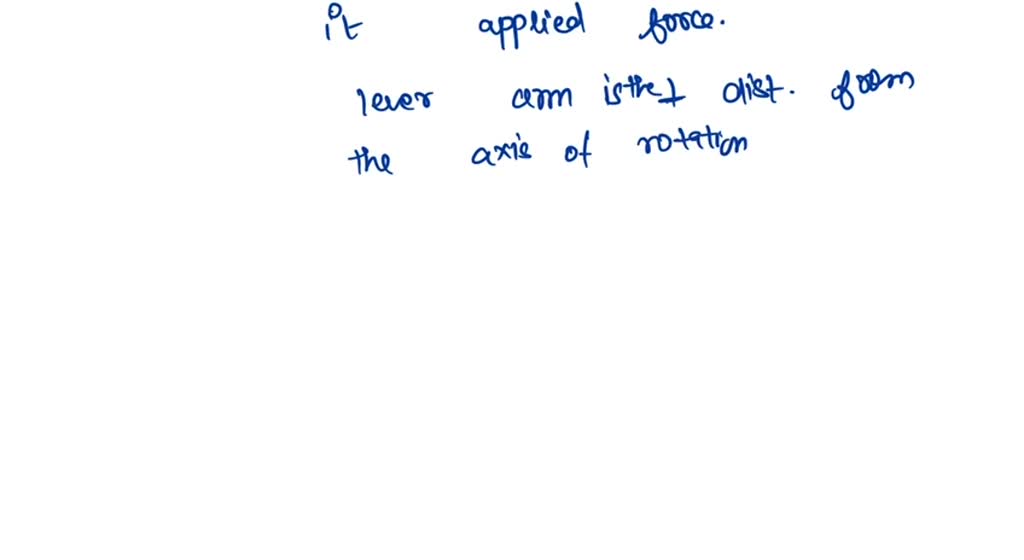 it applied force.
lever arm is the ⊥ dist. from
the axis of rotation